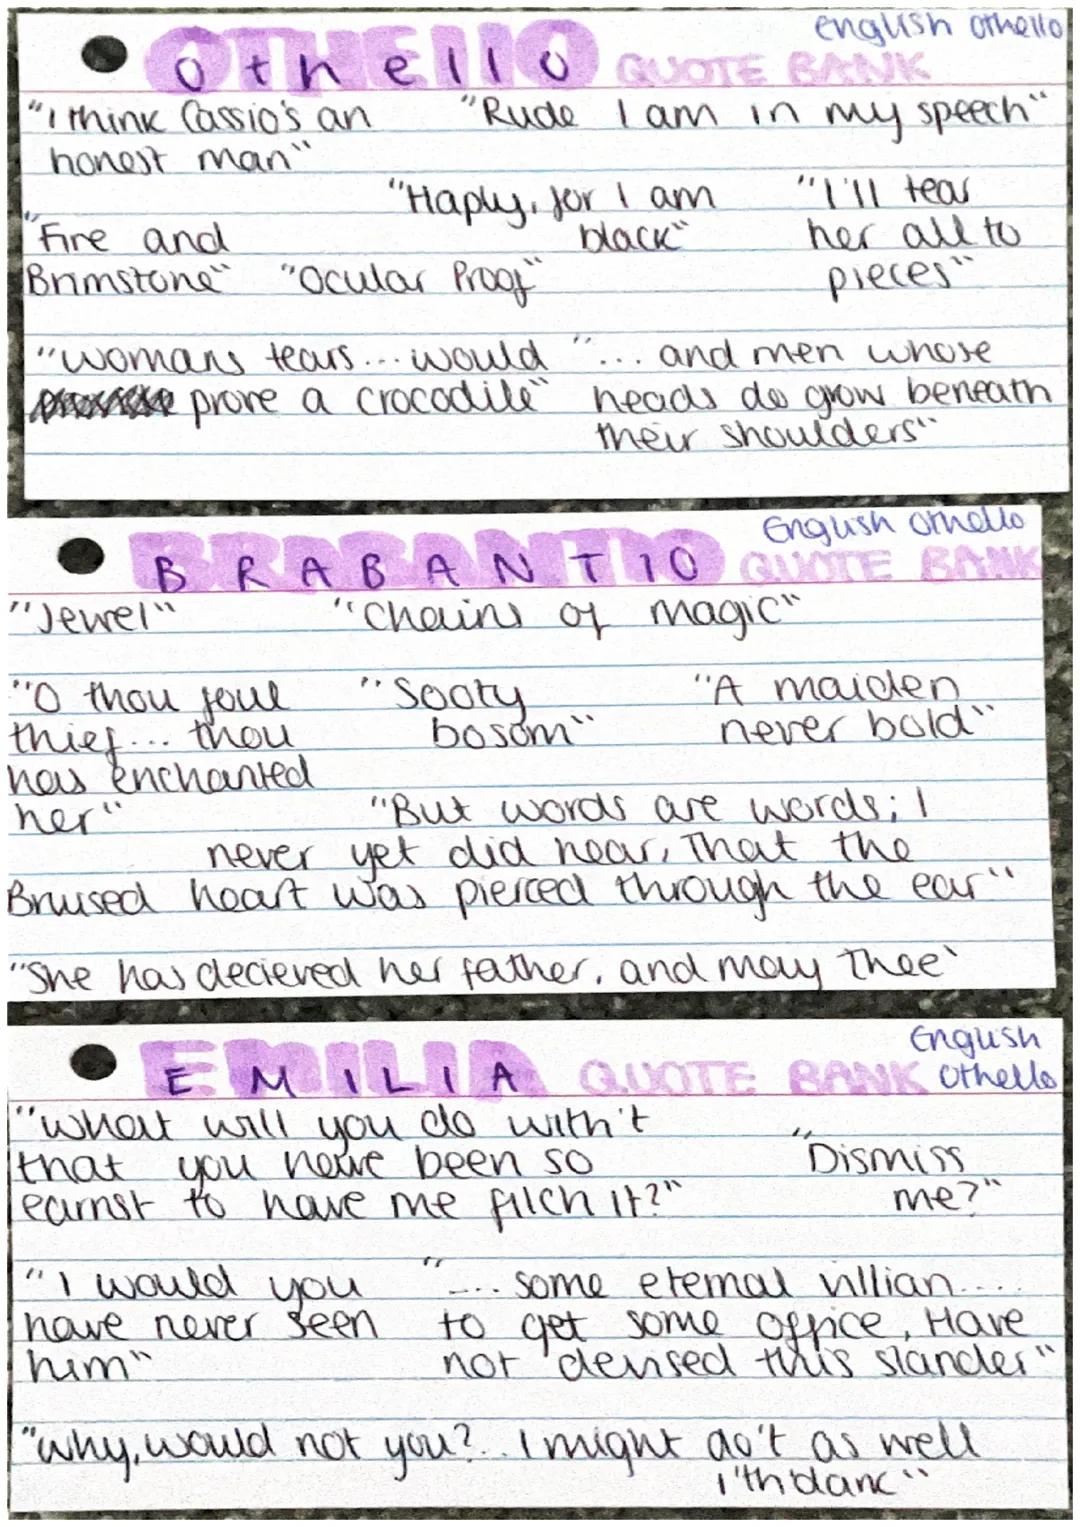 English Othello
Othello QUOTE BANK
"I think Cassio's an
honest man"
"Rude I am in my speech"
"Haply, for I am
black"
"I'll tear
her all to
pieces"
"Fire and
Brimstone"
"Ocular Proof"
"womans tears... would
prove a crocodile"
"... and men whose
heads do grow beneath
their shoulders"
English Othello
BRABANTIO QUOTE BANK
"Jewel"
"Chains of magic"
"O thou foul
thief... thou
has enchanted
her"
"Sooty
bosom"
"A maiden
never bold"
"But words are words; I
never yet did hear, That the
Brused heart was pierced through the ear"
"She has decieved her father, and may thee'
English
Othello
EMILIA QUOTE BANK
"what will you do with't
that you have been so
earnst to have me filch it?"
"Dismiss
me?"
"I would you
have never seen
him"
".... some eternal villian....
to get some office, Have
not devised this slander"
"why, would not you?.. I might do't as well
i'th'dark"